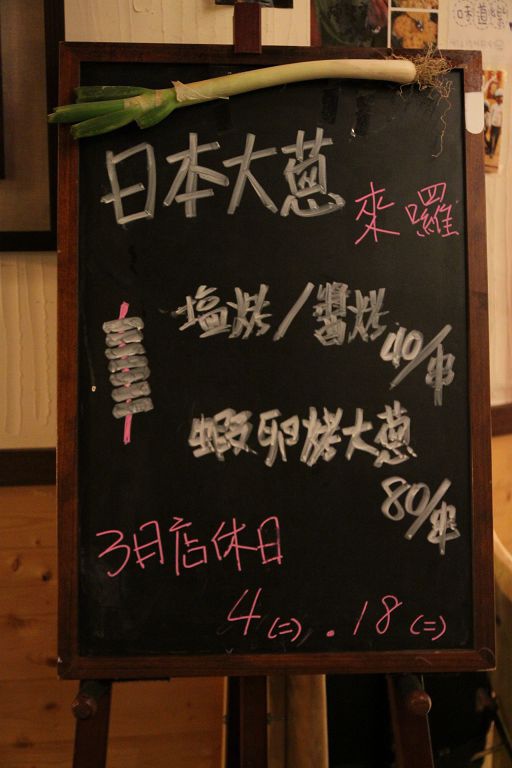 日本大蔥
來囉
塩烤/醬烤
40/串
蝦卵烤大蔥
80/串
3月店休日
4(二).18(二)
味道